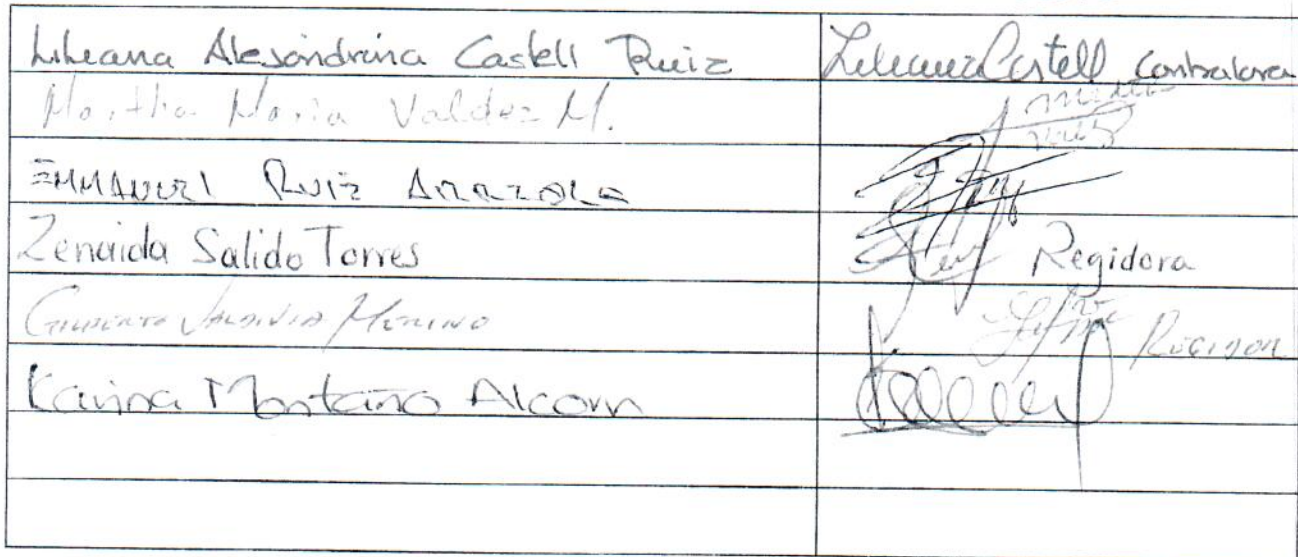 Lileana Alejandrina Castell Ruiz Lileana Castell Contralora
Martha Maria Valdez M.
EMMANUEL RUIZ ARRZOLA
Zenaida Salido Torres Regidora
GILBERTO VALDIVIA MERINO REGIDOR
Karina Montaño Alcorn